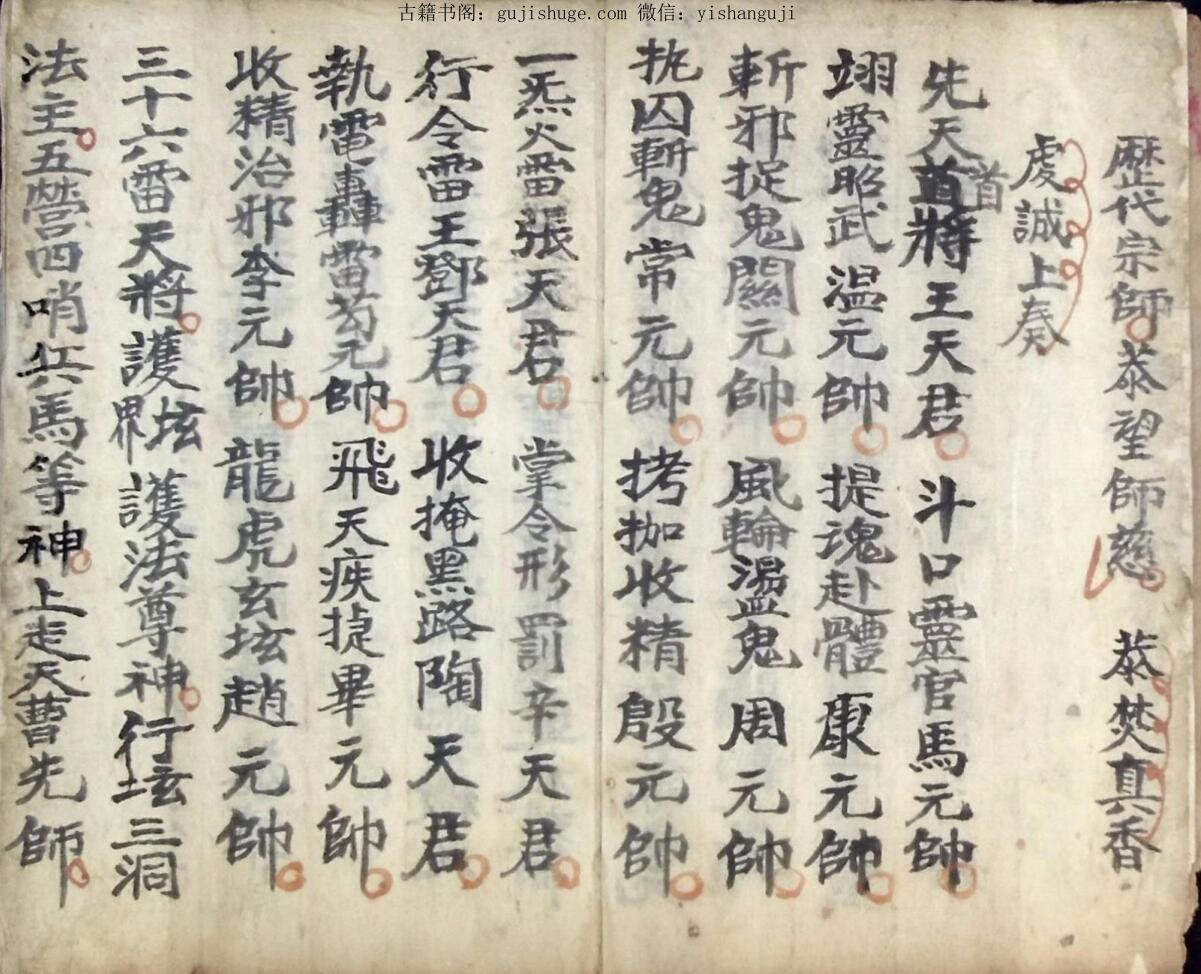 古籍书阁：gujishuge.com 微信：yishanguji
歷代宗師恭望師慈 恭焚真香
虔誠上奏
先天首將王天君 斗口靈官馬元帥
首
翊靈昭武温元帥 提魂赴體康元帥
斬邪捉鬼關元帥 風輪盪鬼周元帥
执囚斬鬼常元帥 拷枷收精殷元帥
一炁火雷張天君 掌令形罰辛天君
行令雷王鄧天君 收掩黑路陶天君
執電轟雷苟元帥 飛天疾捷畢元帥
收精治邪李元帥 龍虎玄坛趙元帥
三十六雷天將護坛界護法尊神行坛三洞
法主五營四哨兵馬等神上走天曹先師